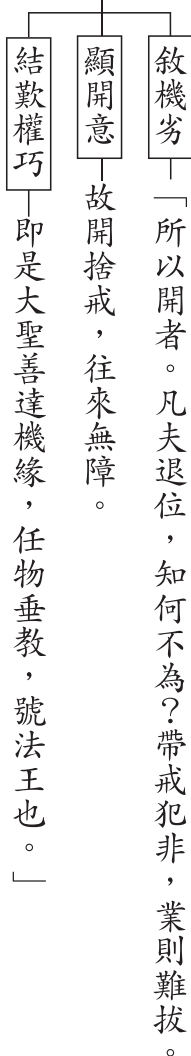 敘機劣 「所以開者。凡夫退位，知何不為？帶戒犯非，業則難拔。
顯開意 故開捨戒，往來無障。
結歎權巧 即是大聖善達機緣，任物垂教，號法王也。」